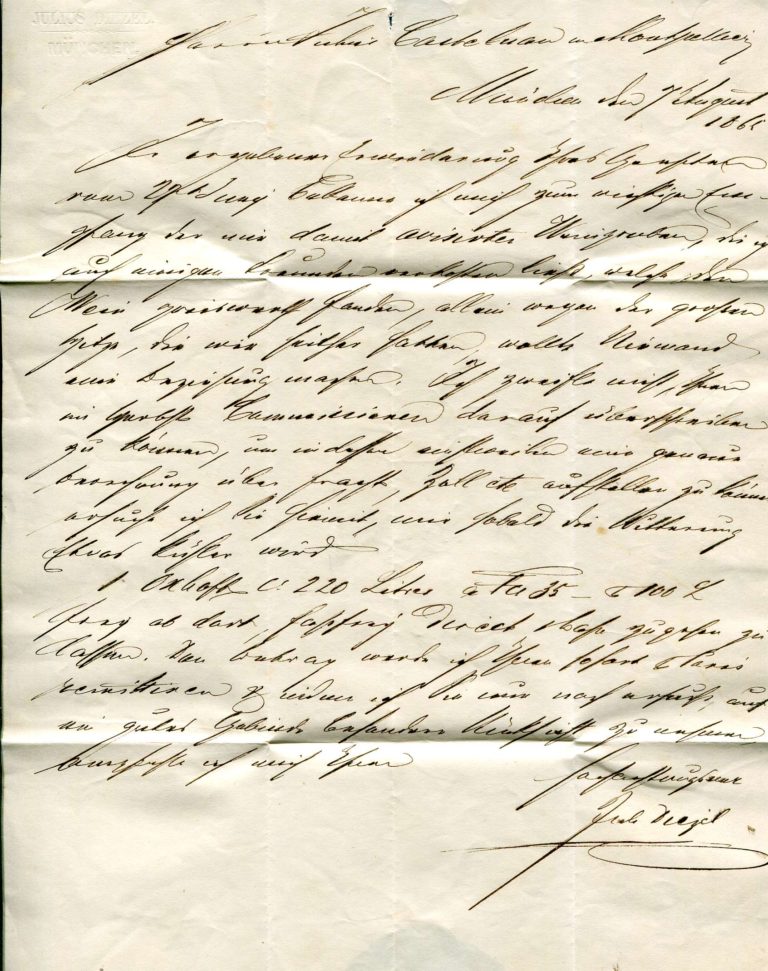 JULIUS DIEZEL
MÜNCHEN.
Herrn Castelnau in Montpellier
München den 7 August
1865
In ergebener Erwiderung Ihres Geehrten
vom 27t Juny bekenne ich mich zum richtigen Em-
pfang der mir damit avisirten Weinproben, die ich
auch einigen Freunden verkosten ließ, welche den
Wein preiswerth fanden, allein wegen der großen
Hitze, die wir seither hatten, wollte Niemand
eine Beziehung machen. Ich zweifle nicht, Ihnen
im Herbste Commissionen darauf überschreiben
zu können, um indessen einstweilen eine genaue
Berechnung über Fracht, Zoll etc aufstellen zu können
ersuche ich Sie hiemit, mir sobald die Witterung
etwas kühler wird
1 Oxhoft Ca 220 Litres a Fcs 35 – 100 L
frey ab dort, faßfrey direct zugehen zu
lassen. Den Betrag werde ich Ihnen sofort Paris
remittiren & indem ich Sie nur noch ersuche, auf
ein gutes Gebinde besondere Rücksicht zu nehmen
empfehle ich mich Ihnen
hochachtungsvoll
Juls Diezel